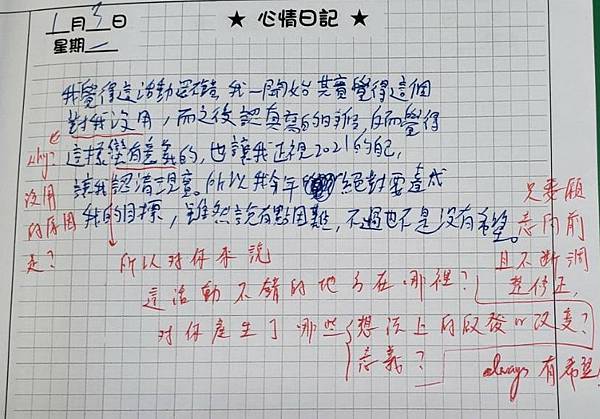 1月3日
★ 心情日記 ★
星期一
我覺得這活動不錯,我一開始其實覺得這個
對我沒用,而之後認真寫的時候,反而覺得
這樣蠻有意義的,也讓我正視2021的自己,
讓我認清現實。所以我今年絕對要達成
我的目標,雖然說有點困難,不過也不是沒有希望。
why?
沒用
的原因
是?
所以對你來說
這活動不錯的地方在哪裡?
對你產生了哪些
想法上的啟發or改變?
意義?
只要願
意向前
且不斷調
整修正,
always 有希望!